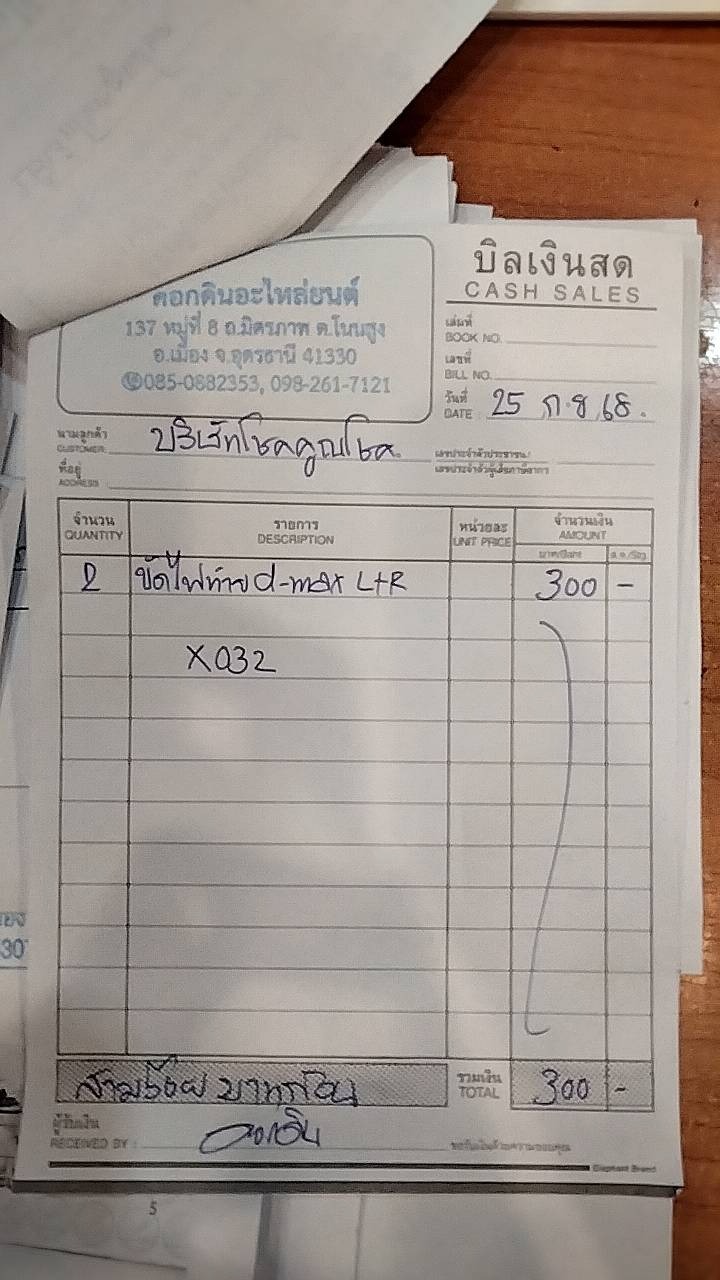 บิลเงินสด
CASH SALES
ดอกดินอะไหล่ยนต์
137 หมู่ที่ 8 ถ.มิตรภาพ ต.โนนสูง
อ.เมือง จ.อุดรธานี 41330
085-0882353, 098-261-7121
เล่มที่
BOOK NO.
เลขที่
BILL NO.
วันที่
DATE 25 ก.ย. 68.
นามลูกค้า
CUSTOMER บริษัทโชคคูณโชค
เลขประจำตัวประชาชน/
เลขประจำตัวผู้เสียภาษีอากร
ที่อยู่
ADDRESS
จำนวน รายการ หน่วยละ จำนวนเงิน
QUANTITY DESCRIPTION UNIT PRICE AMOUNT
2 ไฟท้าย d-max L+R 300 -
X032
สามร้อย บาทถ้วน
รวมเงิน
TOTAL 300 -
ผู้รับเงิน
RECEIVED BY
ขอรับเงินด้วยความขอบคุณ
Elephant Brand
30
5